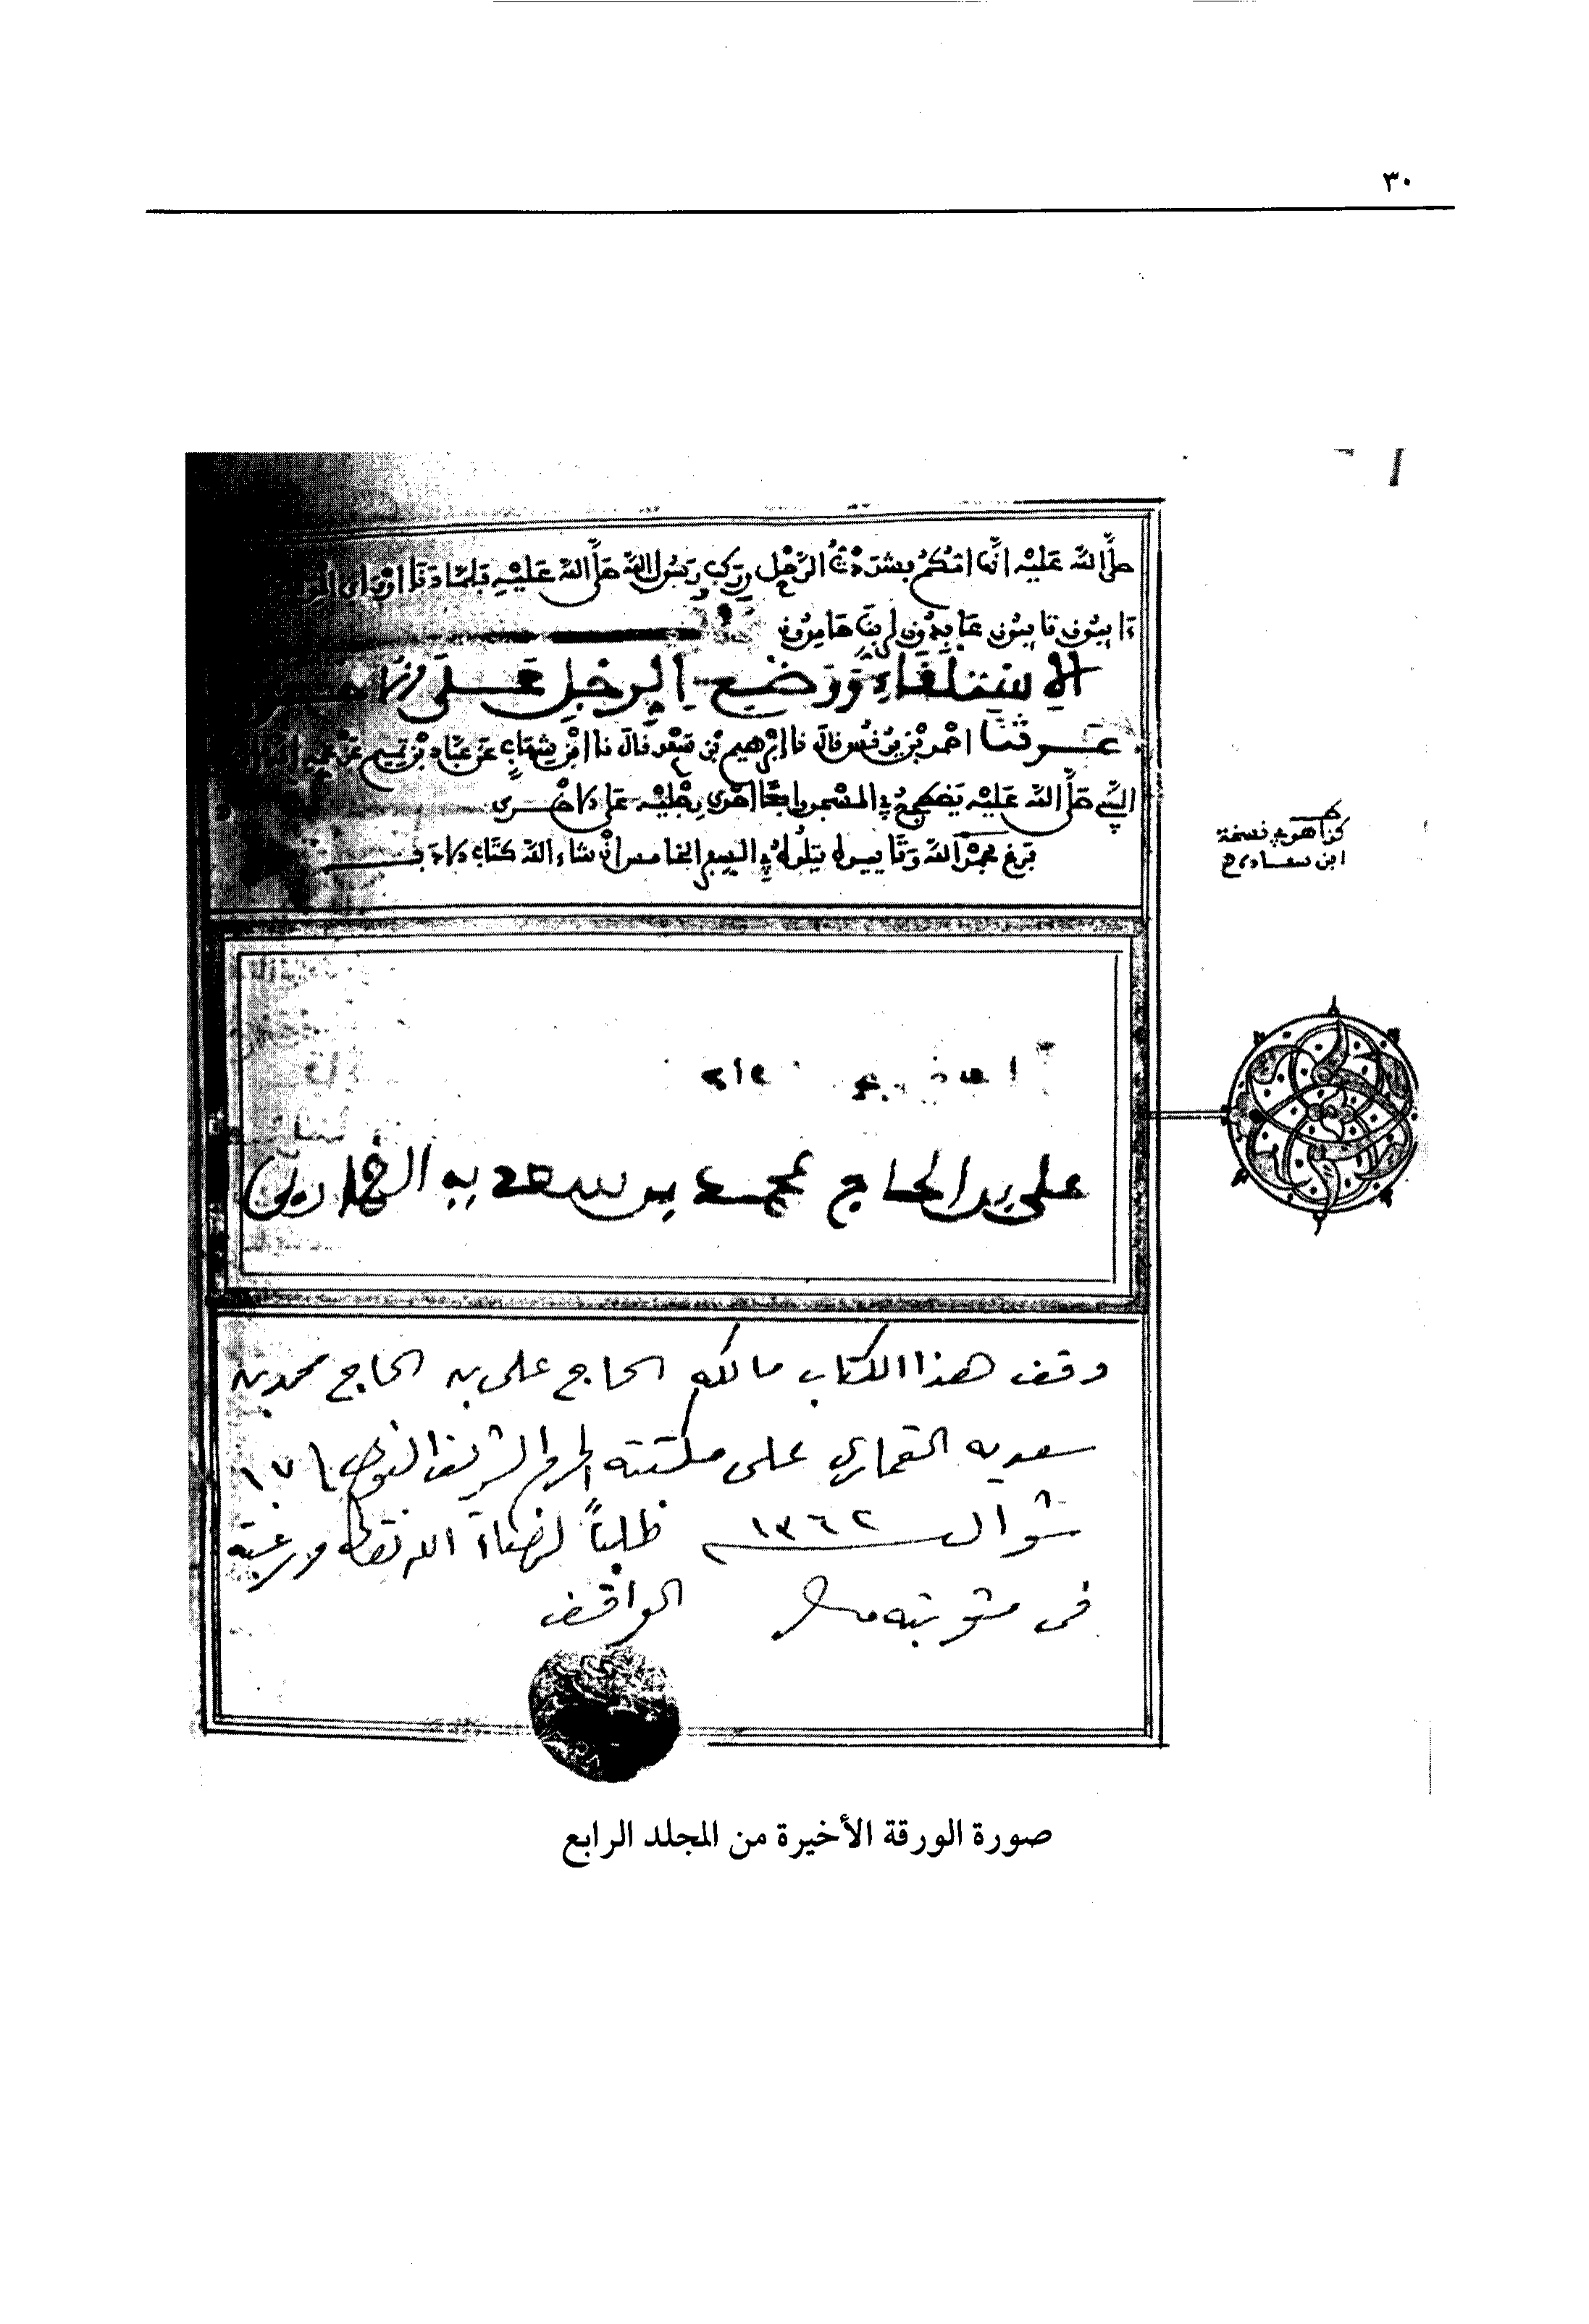 ٣٠
صلَّى الله عَلَيْهِ إنَّها أمّكُم فشَدَدْتُ الرَّحْلَ وركب رسُول الله صَلَّى الله عَلَيْهِ فلمّا دَنَا أوْ رَأى
ءايبُونَ تايبُونَ عَابِدُونَ لِرَبِّنَا حَامِدُونَ
الاسْتِلْقَاءِ وَوَضْعِ الرِّجْلِ عَلَى
حَدَّثَنَا احْمد بْن يُونُس قال نا ابْرهيم بْن سَعْد قال نا ابْن شِهَابٍ عَن عَبّاد بْن تَميم عَنْ عَمِّهِ
النَّبِي صَلَّى الله عَلَيْه يَضْطَجِعُ في المَسْجِد رافِعًا احْدَى رِجْلَيْه عَلى الاخْرَى
كذا هو في نسخة
ابن سعادة
فرغ بحَمْد الله وَتَاييده يَتْلُوهُ في السِّفْر الخامس إنْ شَاءَ الله كتَاب الادَب
على بن الحاج محمد بن سعديه القماري
وقف هذا الكتاب مالكه الحاج على بن الحاج محمد بن
سعديه القماري على مكتبة الحرم الشريف النبوي ١٧
شوال ١٣٦٢ طلبًا لمرضاة الله تعالى ورغبة
في مثوبته
الواقف
صورة الورقة الأخيرة من المجلد الرابع